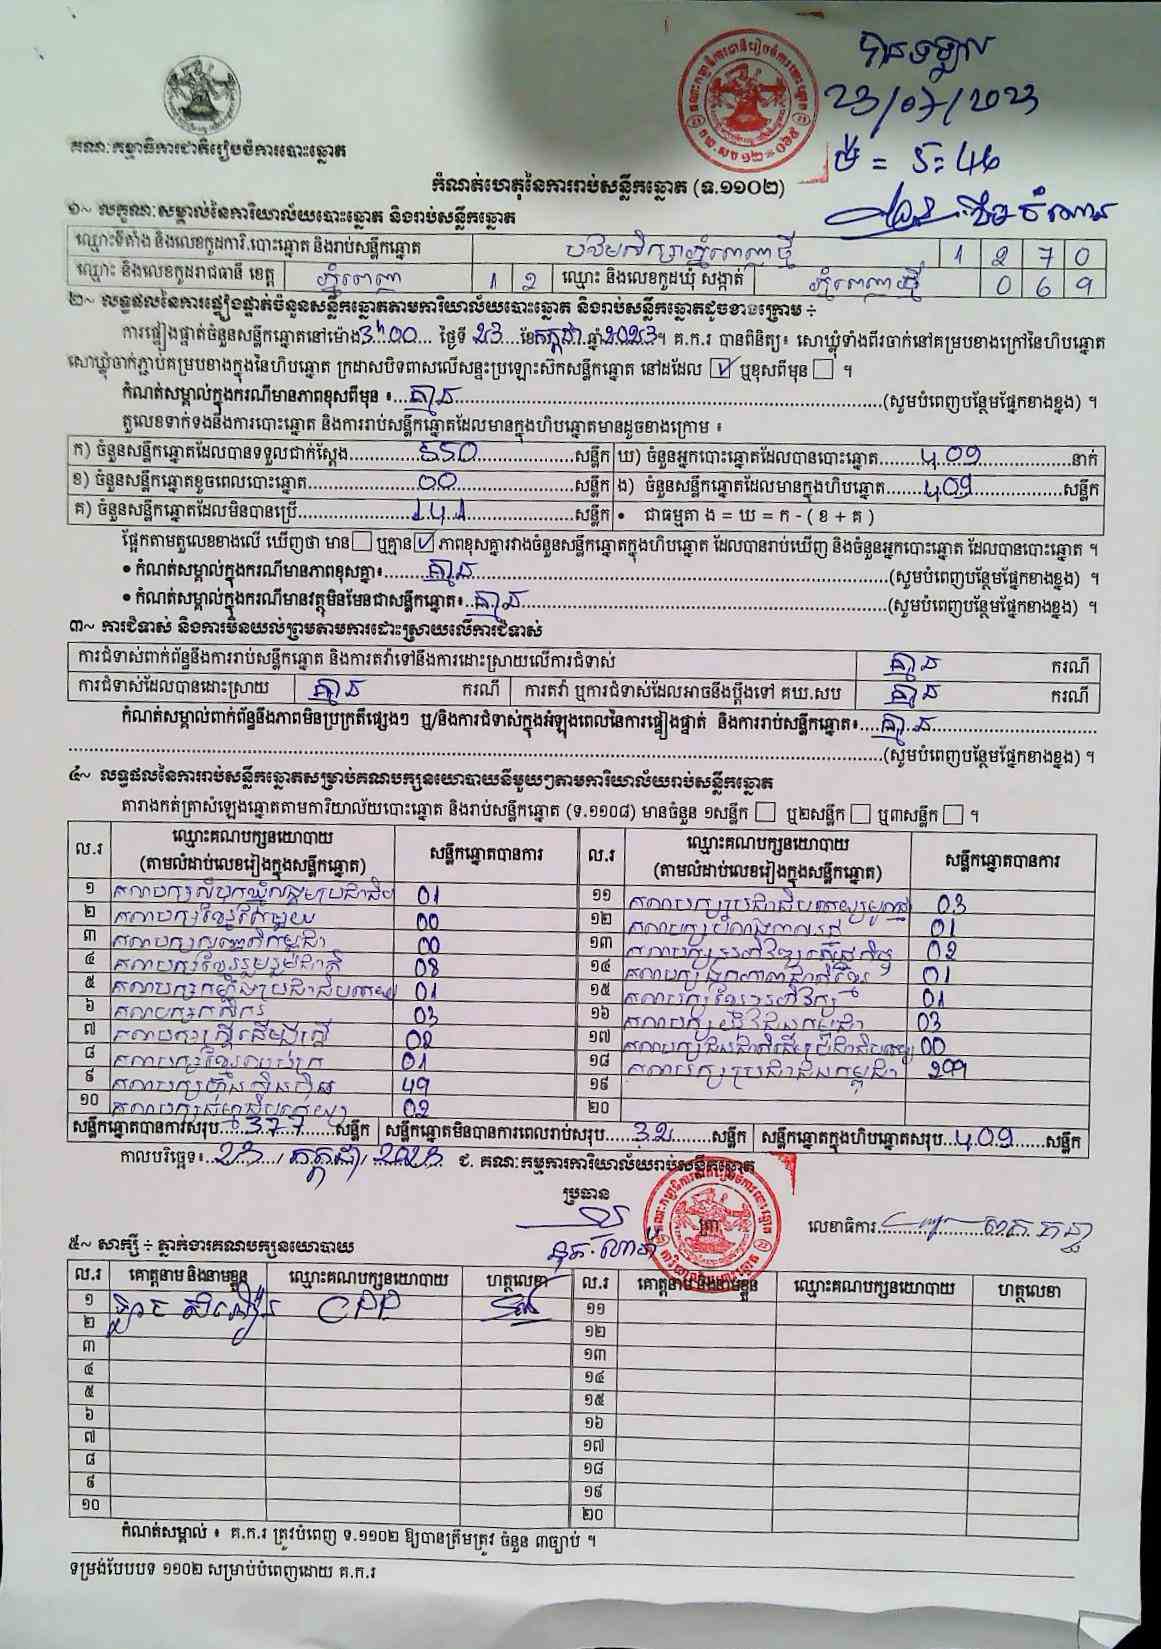 បានទទួល
23/07/2023
ម៉ = 5:46
គណៈកម្មាធិការជាតិរៀបចំការបោះឆ្នោត
កំណត់ហេតុនៃការរាប់សន្លឹកឆ្នោត (ទ.១១០២)
១~ លក្ខណៈសម្គាល់នៃការិយាល័យបោះឆ្នោត និងរាប់សន្លឹកឆ្នោត
ឈ្មោះទីតាំង និងលេខកូដការិ.បោះឆ្នោត និងរាប់សន្លឹកឆ្នោត បឋមសិក្សាភ្នំពេញថ្មី 1 2 7 0
ឈ្មោះ និងលេខកូដរាជធានី ខេត្ត ភ្នំពេញ 1 2 ឈ្មោះ និងលេខកូដឃុំ សង្កាត់ ភ្នំពេញថ្មី 0 6 9
២~ លទ្ធផលនៃការផ្ទៀងផ្ទាត់ចំនួនសន្លឹកឆ្នោតតាមការិយាល័យបោះឆ្នោត និងរាប់សន្លឹកឆ្នោតដូចខាងក្រោម ÷
ការផ្ទៀងផ្ទាត់ចំនួនសន្លឹកឆ្នោតនៅម៉ោង 3h00 ថ្ងៃទី 23 ខែ កក្កដា ឆ្នាំ 2023 ។ គ.ក.រ បានពិនិត្យ៖ សោឃ្លុំទាំងពីរចាក់នៅគម្របខាងក្រៅនៃហិបឆ្នោត
សោឃ្លុំចាក់ភ្ជាប់គម្របខាងក្នុងនៃហិបឆ្នោត ក្រដាសបិទពាសលើសន្ទះប្រឡោះស៊កសន្លឹកឆ្នោត នៅដដែល ☑ ឬខុសពីមុន ☐ ។
កំណត់សម្គាល់ក្នុងករណីមានភាពខុសពីមុន ៖ គ្មាន (សូមបំពេញបន្ថែមផ្នែកខាងខ្នង) ។
តួលេខទាក់ទងនឹងការបោះឆ្នោត និងការរាប់សន្លឹកឆ្នោតដែលមានក្នុងហិបឆ្នោតមានដូចខាងក្រោម ៖
ក) ចំនួនសន្លឹកឆ្នោតដែលបានទទួលជាក់ស្តែង 550 សន្លឹក ឃ) ចំនួនអ្នកបោះឆ្នោតដែលបានបោះឆ្នោត 409 នាក់
ខ) ចំនួនសន្លឹកឆ្នោតខូចពេលបោះឆ្នោត 00 សន្លឹក ង) ចំនួនសន្លឹកឆ្នោតដែលមានក្នុងហិបឆ្នោត 409 សន្លឹក
គ) ចំនួនសន្លឹកឆ្នោតដែលមិនបានប្រើ 141 សន្លឹក • ជាធម្មតា ង = ឃ = ក - ( ខ + គ )
ផ្អែកតាមតួលេខខាងលើ ឃើញថា មាន ☐ ឬគ្មាន ☑ ភាពខុសគ្នារវាងចំនួនសន្លឹកឆ្នោតក្នុងហិបឆ្នោត ដែលបានរាប់ឃើញ និងចំនួនអ្នកបោះឆ្នោត ដែលបានបោះឆ្នោត ។
• កំណត់សម្គាល់ក្នុងករណីមានភាពខុសគ្នា៖ គ្មាន (សូមបំពេញបន្ថែមផ្នែកខាងខ្នង) ។
• កំណត់សម្គាល់ក្នុងករណីមានវត្ថុមិនមែនជាសន្លឹកឆ្នោត៖ គ្មាន (សូមបំពេញបន្ថែមផ្នែកខាងខ្នង) ។
៣~ ការជំទាស់ និងការមិនយល់ព្រមតាមការដោះស្រាយលើការជំទាស់
ការជំទាស់ពាក់ព័ន្ធនឹងការរាប់សន្លឹកឆ្នោត និងការតវ៉ាទៅនឹងការដោះស្រាយលើការជំទាស់ គ្មាន ករណី
ការជំទាស់ដែលបានដោះស្រាយ គ្មាន ករណី ការតវ៉ា ឬការជំទាស់ដែលអាចនឹងប្តឹងទៅ គឃ.សប គ្មាន ករណី
កំណត់សម្គាល់ពាក់ព័ន្ធនឹងភាពមិនប្រក្រតីផ្សេងៗ ឬ/និងការជំទាស់ក្នុងអំឡុងពេលនៃការផ្ទៀងផ្ទាត់ និងការរាប់សន្លឹកឆ្នោត៖ គ្មាន
(សូមបំពេញបន្ថែមផ្នែកខាងខ្នង) ។
៤~ លទ្ធផលនៃការរាប់សន្លឹកឆ្នោតសម្រាប់គណបក្សនយោបាយនីមួយៗតាមការិយាល័យរាប់សន្លឹកឆ្នោត
តារាងកត់ត្រាសំឡេងឆ្នោតតាមការិយាល័យបោះឆ្នោត និងរាប់សន្លឹកឆ្នោត (ទ.១១០៨) មានចំនួន ១សន្លឹក ☐ ឬ២សន្លឹក ☐ ឬ៣សន្លឹក ☐ ។
ល.រ ឈ្មោះគណបក្សនយោបាយ (តាមលំដាប់លេខរៀងក្នុងសន្លឹកឆ្នោត) សន្លឹកឆ្នោតបានការ ល.រ ឈ្មោះគណបក្សនយោបាយ (តាមលំដាប់លេខរៀងក្នុងសន្លឹកឆ្នោត) សន្លឹកឆ្នោតបានការ
១ គណបក្សសំបុកឃ្មុំសង្គមប្រជាធិប 01 ១១ គណបក្ស 03
២ គណបក្សខ្មែរតែមួយ 00 ១២ គណបក្ស 01
៣ គណបក្សសញ្ជាតិកម្ពុជា 00 ១៣ គណបក្ស 02
៤ គណបក្សខ្មែររួបរួមជាតិ 08 ១៤ គណបក្សឯកភាពជាតិខ្មែរ 01
៥ គណបក្សកម្លាំងប្រជាធិបតេយ្យ 01 ១៥ គណបក្សខ្មែរអភិវឌ្ឍ 01
៦ គណបក្សកសិករ 03 ១៦ គណបក្សយុវជនកម្ពុជា 03
៧ គណបក្សស្ត្រីដើម្បីស្ត្រី 02 ១៧ គណបក្សជនជាតិដើមប្រជាធិបតេយ្យ 00
៨ គណបក្សខ្មែរឈប់ក្រ 01 ១៨ គណបក្សប្រជាជនកម្ពុជា 299
៩ គណបក្សហ្វ៊ុនស៊ិនប៉ិច 49 ១៩
១០ គណបក្សធម្មាធិបតេយ្យ 02 ២០
សន្លឹកឆ្នោតបានការសរុប 377 សន្លឹក សន្លឹកឆ្នោតមិនបានការពេលរាប់សរុប 32 សន្លឹក សន្លឹកឆ្នោតក្នុងហិបឆ្នោតសរុប 409 សន្លឹក
កាលបរិច្ឆេទ៖ 23 / កក្កដា / 2023 ជ. គណៈកម្មការការិយាល័យរាប់សន្លឹកឆ្នោត
ប្រធាន
ត្រា
លេខាធិការ
៥~ សាក្សី ÷ ភ្នាក់ងារគណបក្សនយោបាយ
ល.រ គោត្តនាម និងនាមខ្លួន ឈ្មោះគណបក្សនយោបាយ ហត្ថលេខា ល.រ គោត្តនាម និងនាមខ្លួន ឈ្មោះគណបក្សនយោបាយ ហត្ថលេខា
១ CPP ១១
២ ១២
៣ ១៣
៤ ១៤
៥ ១៥
៦ ១៦
៧ ១៧
៨ ១៨
៩ ១៩
១០ ២០
កំណត់សម្គាល់ ៖ គ.ក.រ ត្រូវបំពេញ ទ.១១០២ ឱ្យបានត្រឹមត្រូវ ចំនួន ៣ច្បាប់ ។
ទម្រង់បែបបទ ១១០២ សម្រាប់បំពេញដោយ គ.ក.រ